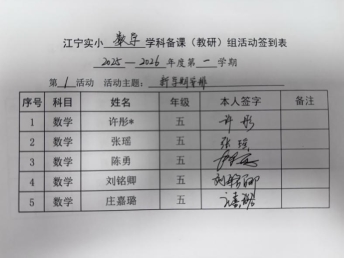 江宁实小 数学 学科备课（教研）组活动签到表
2025—2026 年度第 一 学期
第 1 活动 活动主题： 新学期安排
序号 科目 姓名 年级 本人签字 备注
1 数学 许彤* 五 许彤
2 数学 张瑶 五 张瑶
3 数学 陈勇 五
4 数学 刘铭卿 五 刘铭卿
5 数学 庄嘉璐 五